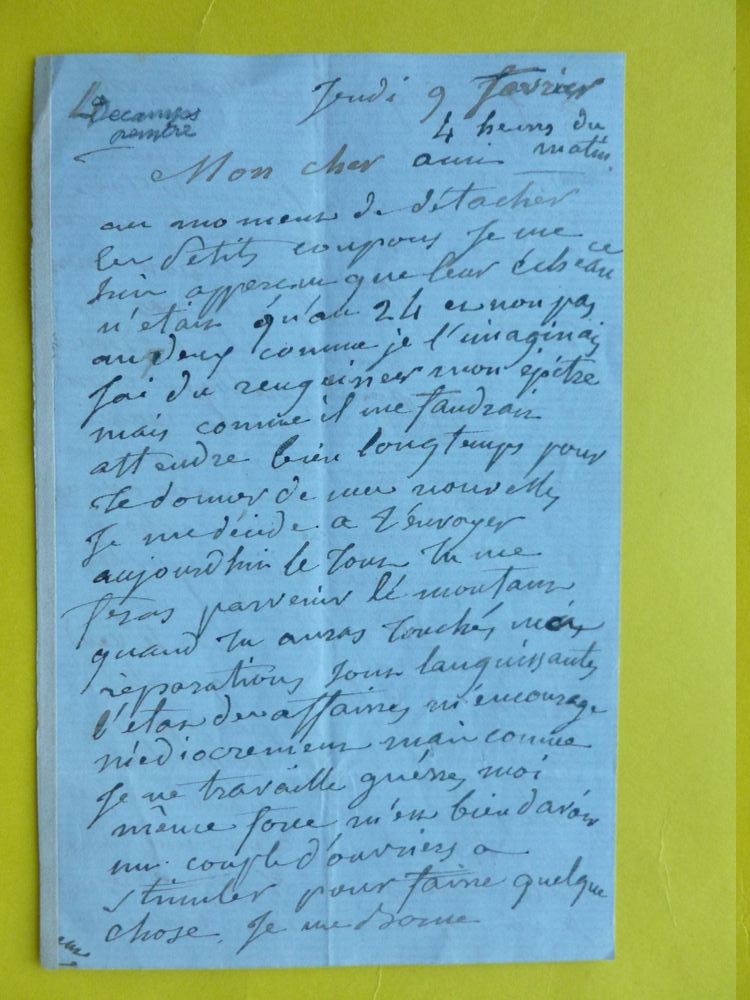 Jeudi 9 fevrier
Decamps
peintre
4 heures du
matin
Mon cher ami
au moment de détacher
les petits coupons je me
suis apperçu que leur échéance
n'etait qu'au 24 et non pas
au deux comme je l'imaginais
j'ai du rengeiner mon epitre
mais comme il me faudrait
attendre bien longtemps pour
te donner de mes nouvelles
Je me décide a t'envoyer
aujourdhui le tout tu me
feras parvenir le montant
quand tu auras touché, mes
réparations sont languissantes
l'etat des affaires m'encourage
médiocrement mais comme
je ne travaille guéres moi
même force m'est bien d'avoir
un couple d'ouvriers a
stimuler pour faire quelque
chose. Je me donne